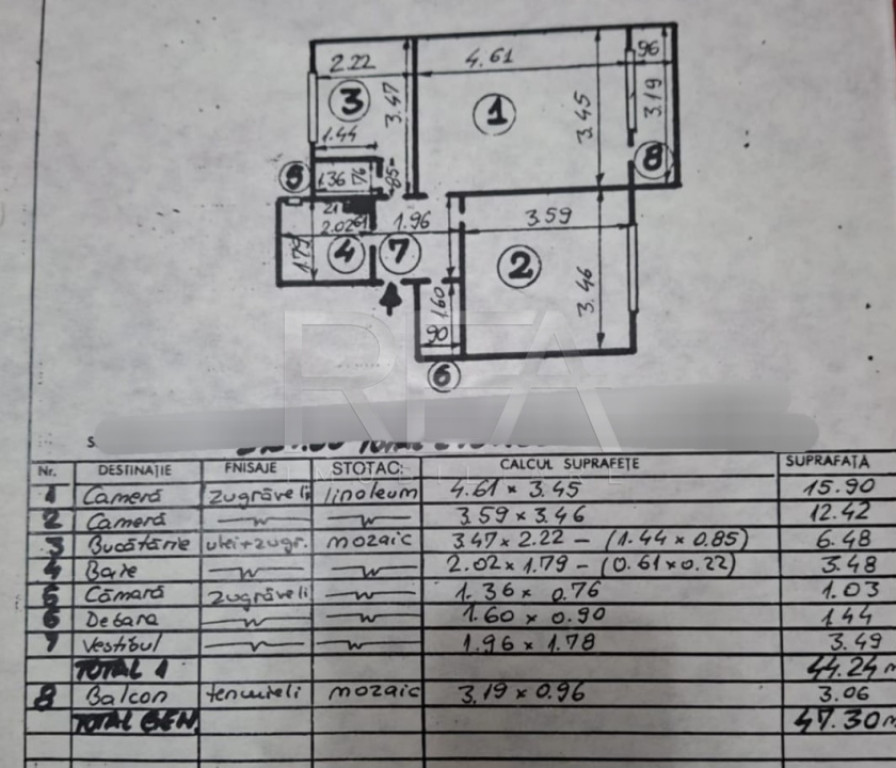 2.22
4.61
96
3
3.47
1
3.45
3.19
1.44
8
5
1.36 76
85
21
2.02 61
1.96
3.59
1.79
4
7
2
3.46
1.60
90
6
RITA
IMOBIL
S
Nr. DESTINAȚIE FNISAJE STOTAC: CALCUL SUPRAFEȚE SUPRAFAȚA
1 Cameră zugrăveli linoleum 4.61 × 3.45 15.90
2 Cameră 3.59 × 3.46 12.42
3 Bucătărie ulei+zugr. mozaic 3.47 × 2.22 – (1.44 × 0.85) 6.48
4 Baie 2.02 × 1.79 – (0.61 × 0.22) 3.48
5 Cămară zugrăveli 1.36 × 0.76 1.03
6 Debara 1.60 × 0.90 1.44
7 Vestibul 1.96 × 1.78 3.49
TOTAL 1 44.24 m
8 Balcon tencuieli mozaic 3.19 × 0.96 3.06
TOTAL GEN. 47.30 m